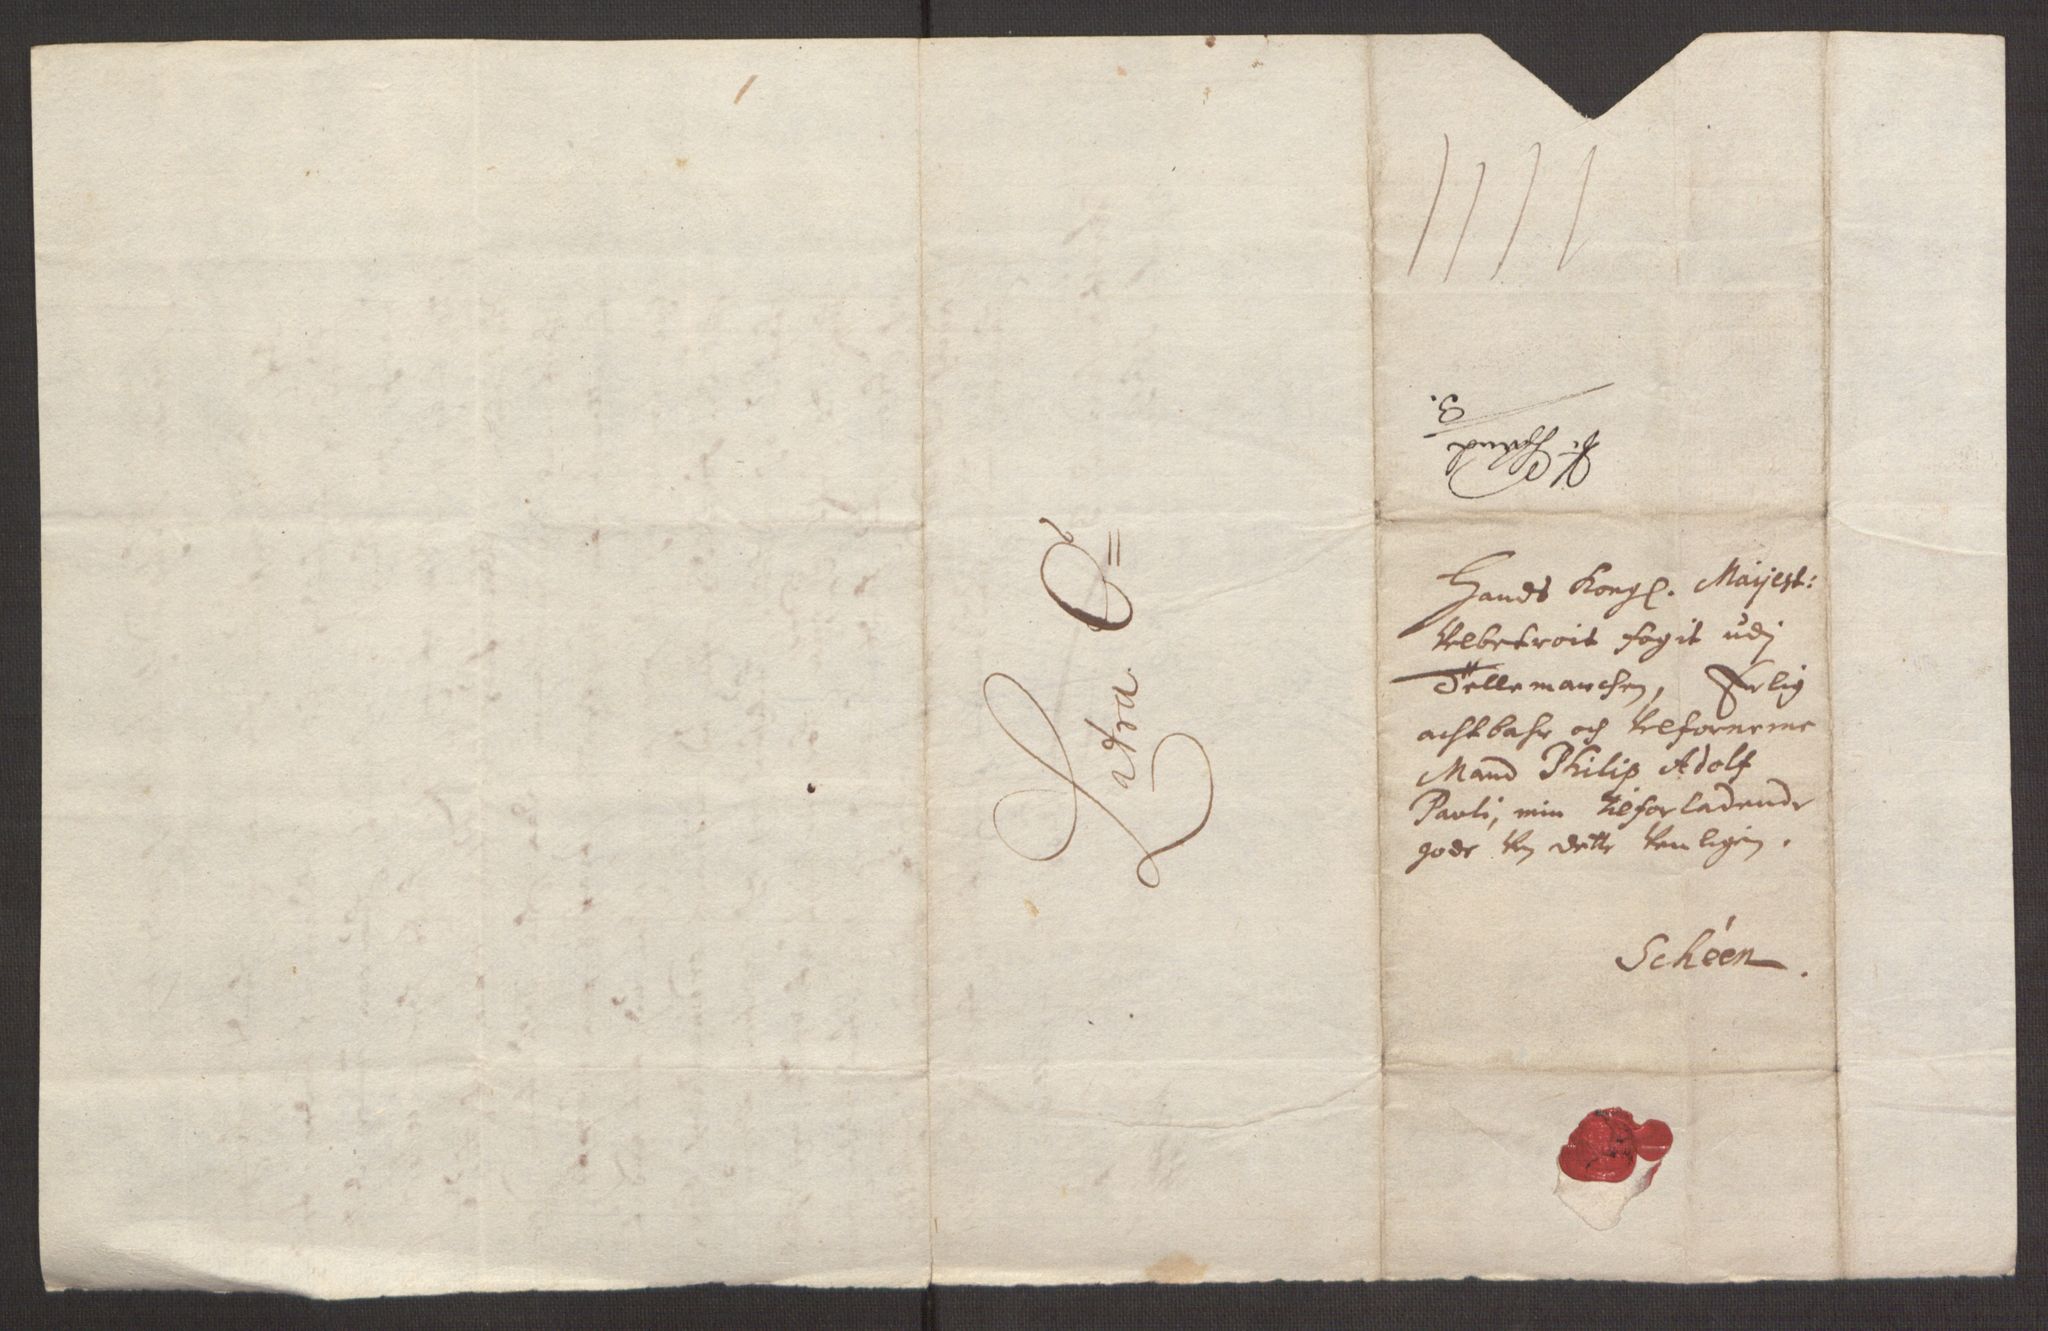 Litra O=
Hands Kongl. Maijest:
Velbetroit fogit udj
Tellemarchen, Erlig
achtbahr och Velfornemme
Mand Philip Adolf
Pauli, min tilforladende
gode Ven dette Venligen.
Schéen.
3.